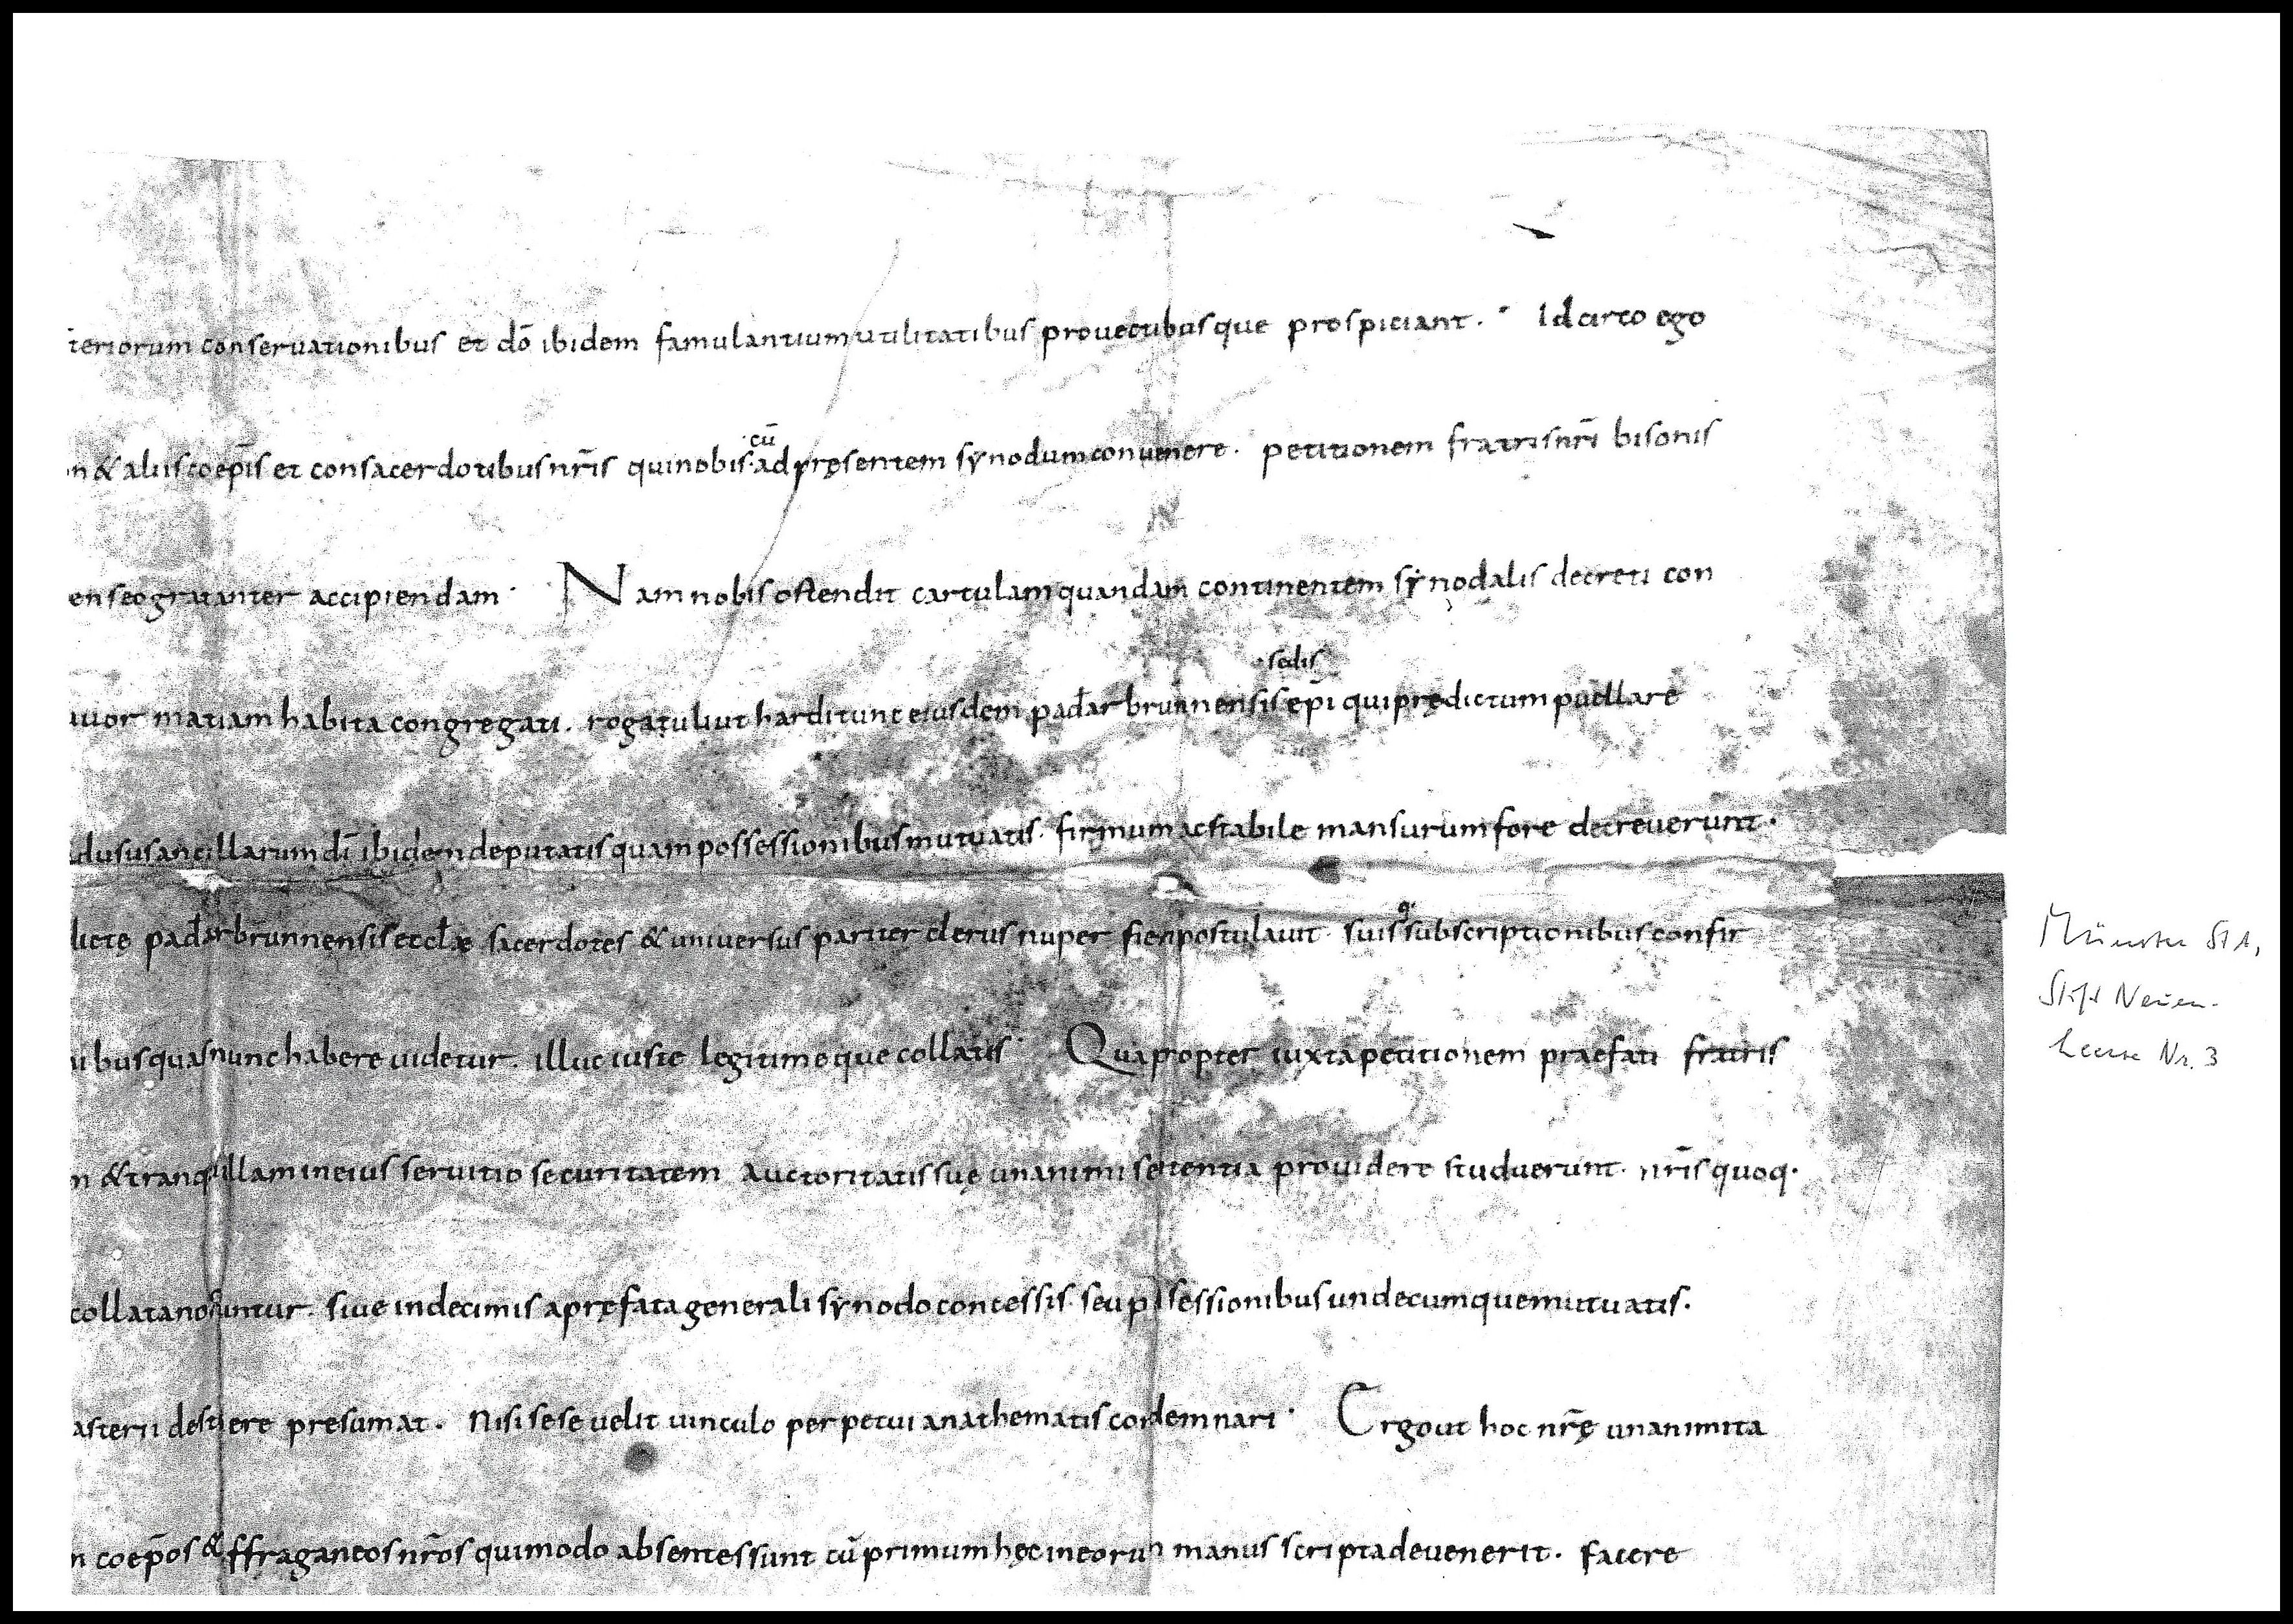 teriorum conseruationibus et dō ibidem famulantium utilitatibus prouectibusque prospiciant. Idcirco ego
cū
n & aliis coep̄is et consacerdotibus nr̄is qui nobis ad pręsentem sẏnodum conuenere. petitionem fratris nr̄i bisonis
enseo gratanter accipiendam. Nam nobis ostendit cartulam quandam continentem sẏnodalis decreti con
sedis
uuormatiam habita congregati. rogatu liuthardi tunc eiusdem pađarbrunnensis ep̄i qui prędictum puellare
ad usus ancillarum dī ibidem deputatis quam possessionibus mutuatis. firmum ac stabile mansurum fore decreuerunt.
q;
dictę pađarbrunnensis eccłae sacerdotes & uniuersus pariter clerus nuper fieri postulauit. suis subscriptionibus confir
ibus quas nunc habere uidetur. illuc iuste legitimeque collatis. Quapropter iuxta petitionem praefati fratris
n & tranquillam in eius seruitio securitatem auctoritatis suę unanimi sententia prouidere studuerunt. nr̄is quoq.
collata noscuntur. siue in decimis a pręfata generali sẏnodo concessis. seu possessionibus undecumque mutuatis.
asterii destruere presumat. Nisi sese uelit uinculo perpetui anathematis condemnari. Ergo ut hoc nr̄ę unanimita
n coep̄os & suffraganeos nr̄os qui modo absentes sunt cū primum hęc in eorum manus scripta deuenerit. facere
Münster StA,
Stift Neuen-
heerse Nr. 3